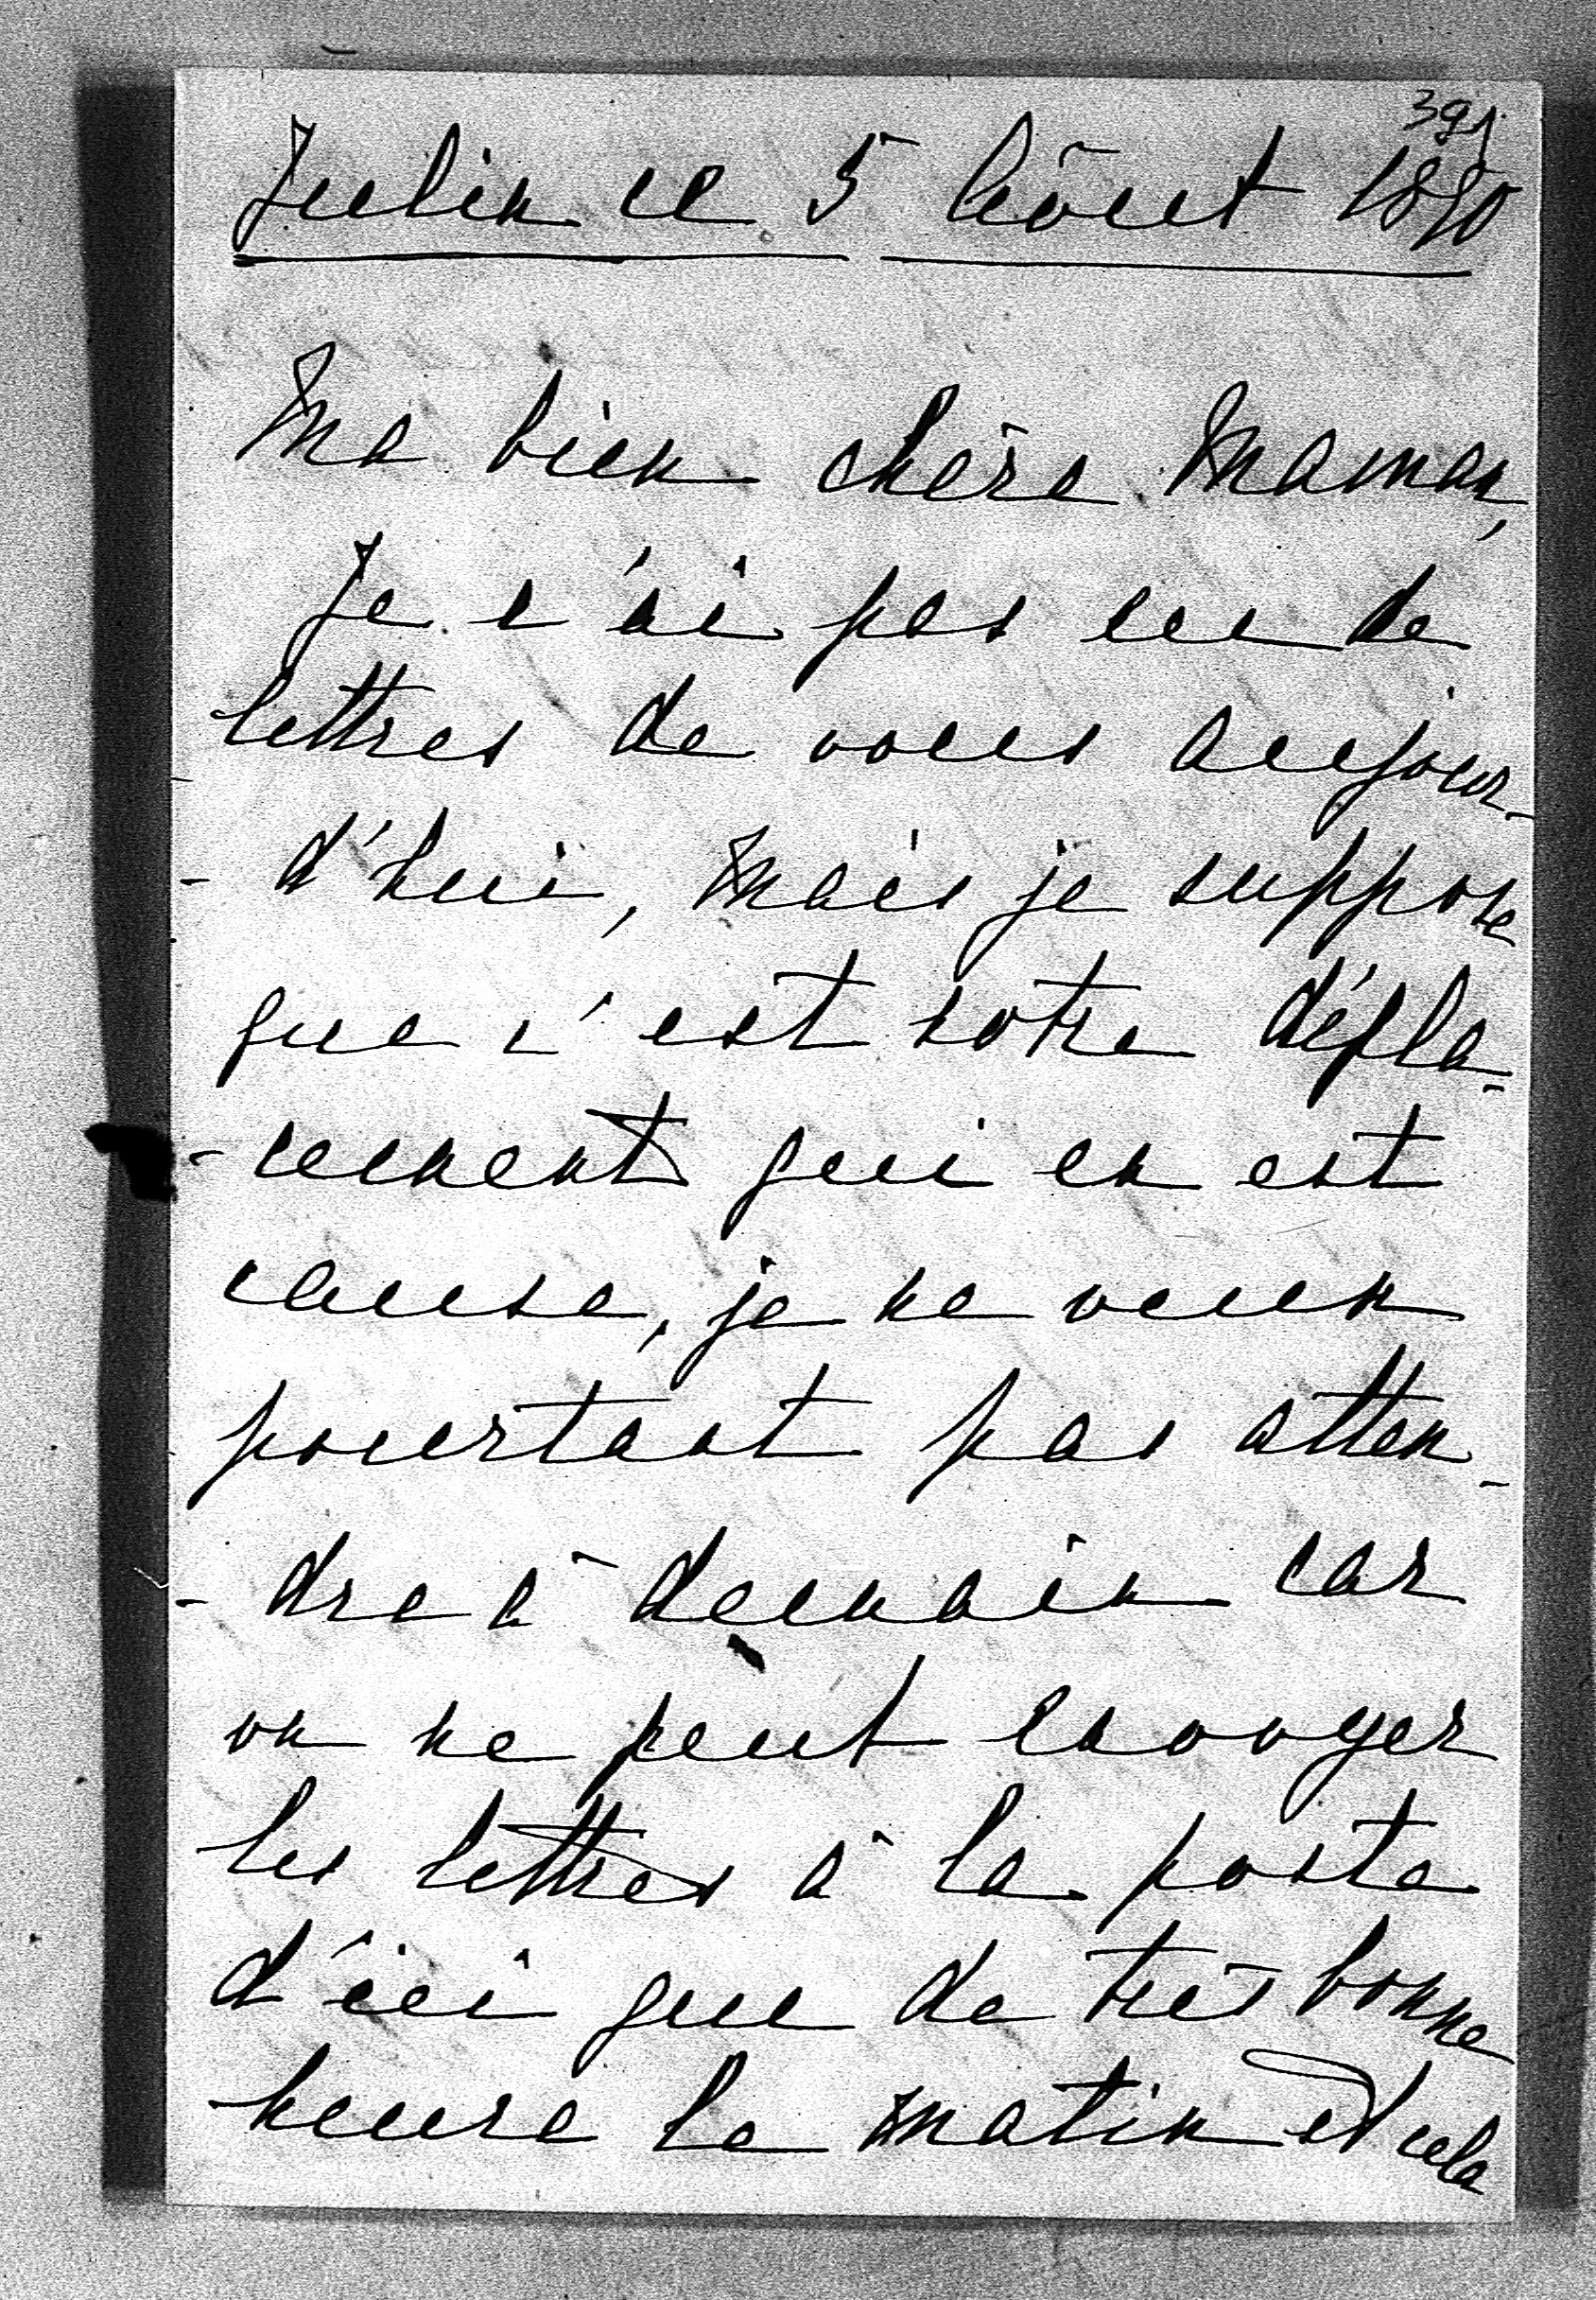 391
Julin ce 5 Août 1890
Ma bien chère Maman,
Je n'ai pas eu de
lettres de vous aujour-
- d'hui, mais je suppose
que c'est votre dépla-
- cement qui en est
cause, je ne veux
pourtant pas atten-
- dre à demain car
on ne peut envoyer
les lettres à la poste
d'ici que de très bonne
heure le matin et cela